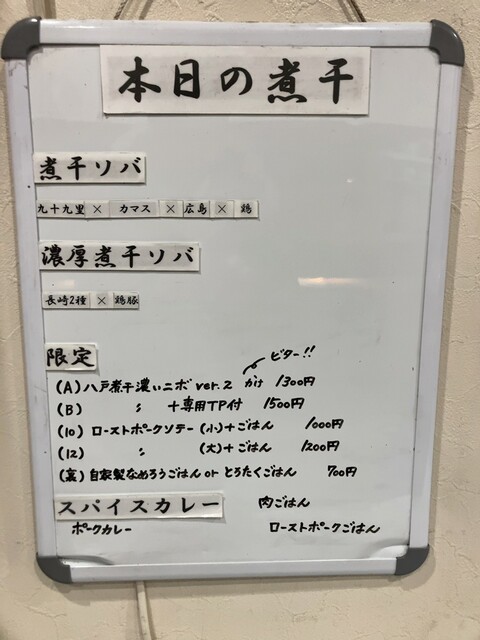 本日の煮干
煮干ソバ
九十九里 × カマス × 広島 × 鶏
濃厚煮干ソバ
長崎2種 × 鶏豚
限定
ビター!!
(A) 八戸煮干濃いニボ ver.2 かけ 1300円
(B) 〃 +専用TP付 1500円
(10) ローストポークソテー (小)+ごはん 1000円
(12) 〃 (大)+ごはん 1200円
(裏) 自家製なめろうごはん or とろたくごはん 700円
スパイスカレー 肉ごはん
ポークカレー ローストポークごはん